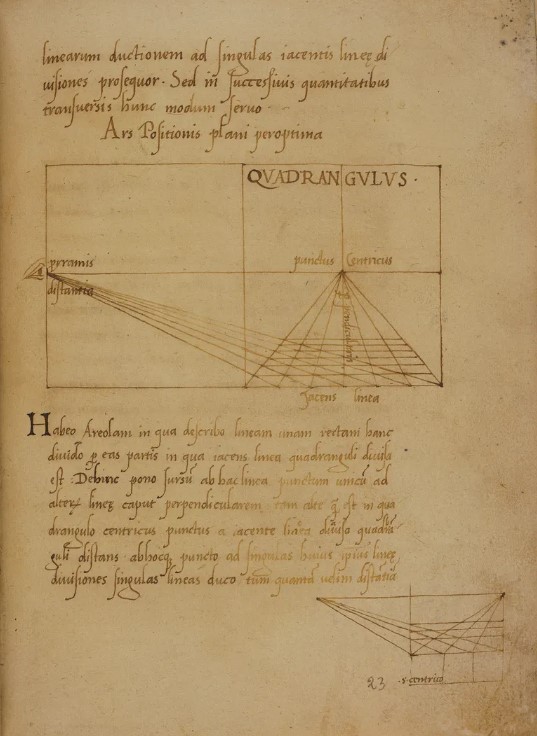 linearum ductionem ad singulas iacentis lineę di
uisiones prosequor. Sed in successiuis quantitatibus
transuersis hunc modum seruo.
Ars Positionis plani peroptima
QVADRANGVLVS.
pyramis
distantia
punctus Centricus
Jacens linea
Habeo Areolam in qua describo lineam unam rectam hanc
diuido p eas partis in qua iacens linea quadranguli diuisa
est. Dehinc pono sursū ab hac linea punctum unicū ad
alterā lineę caput perpendicularem tam alte q̄ est in qua
drangulo centricus punctus a iacente linea diuisa quadrā
guli distans. abhocq, puncto ad singulas huius ipsius lineę
diuisiones singulas lineas duco tum quantā uelim distātiā
23
.s. centrico